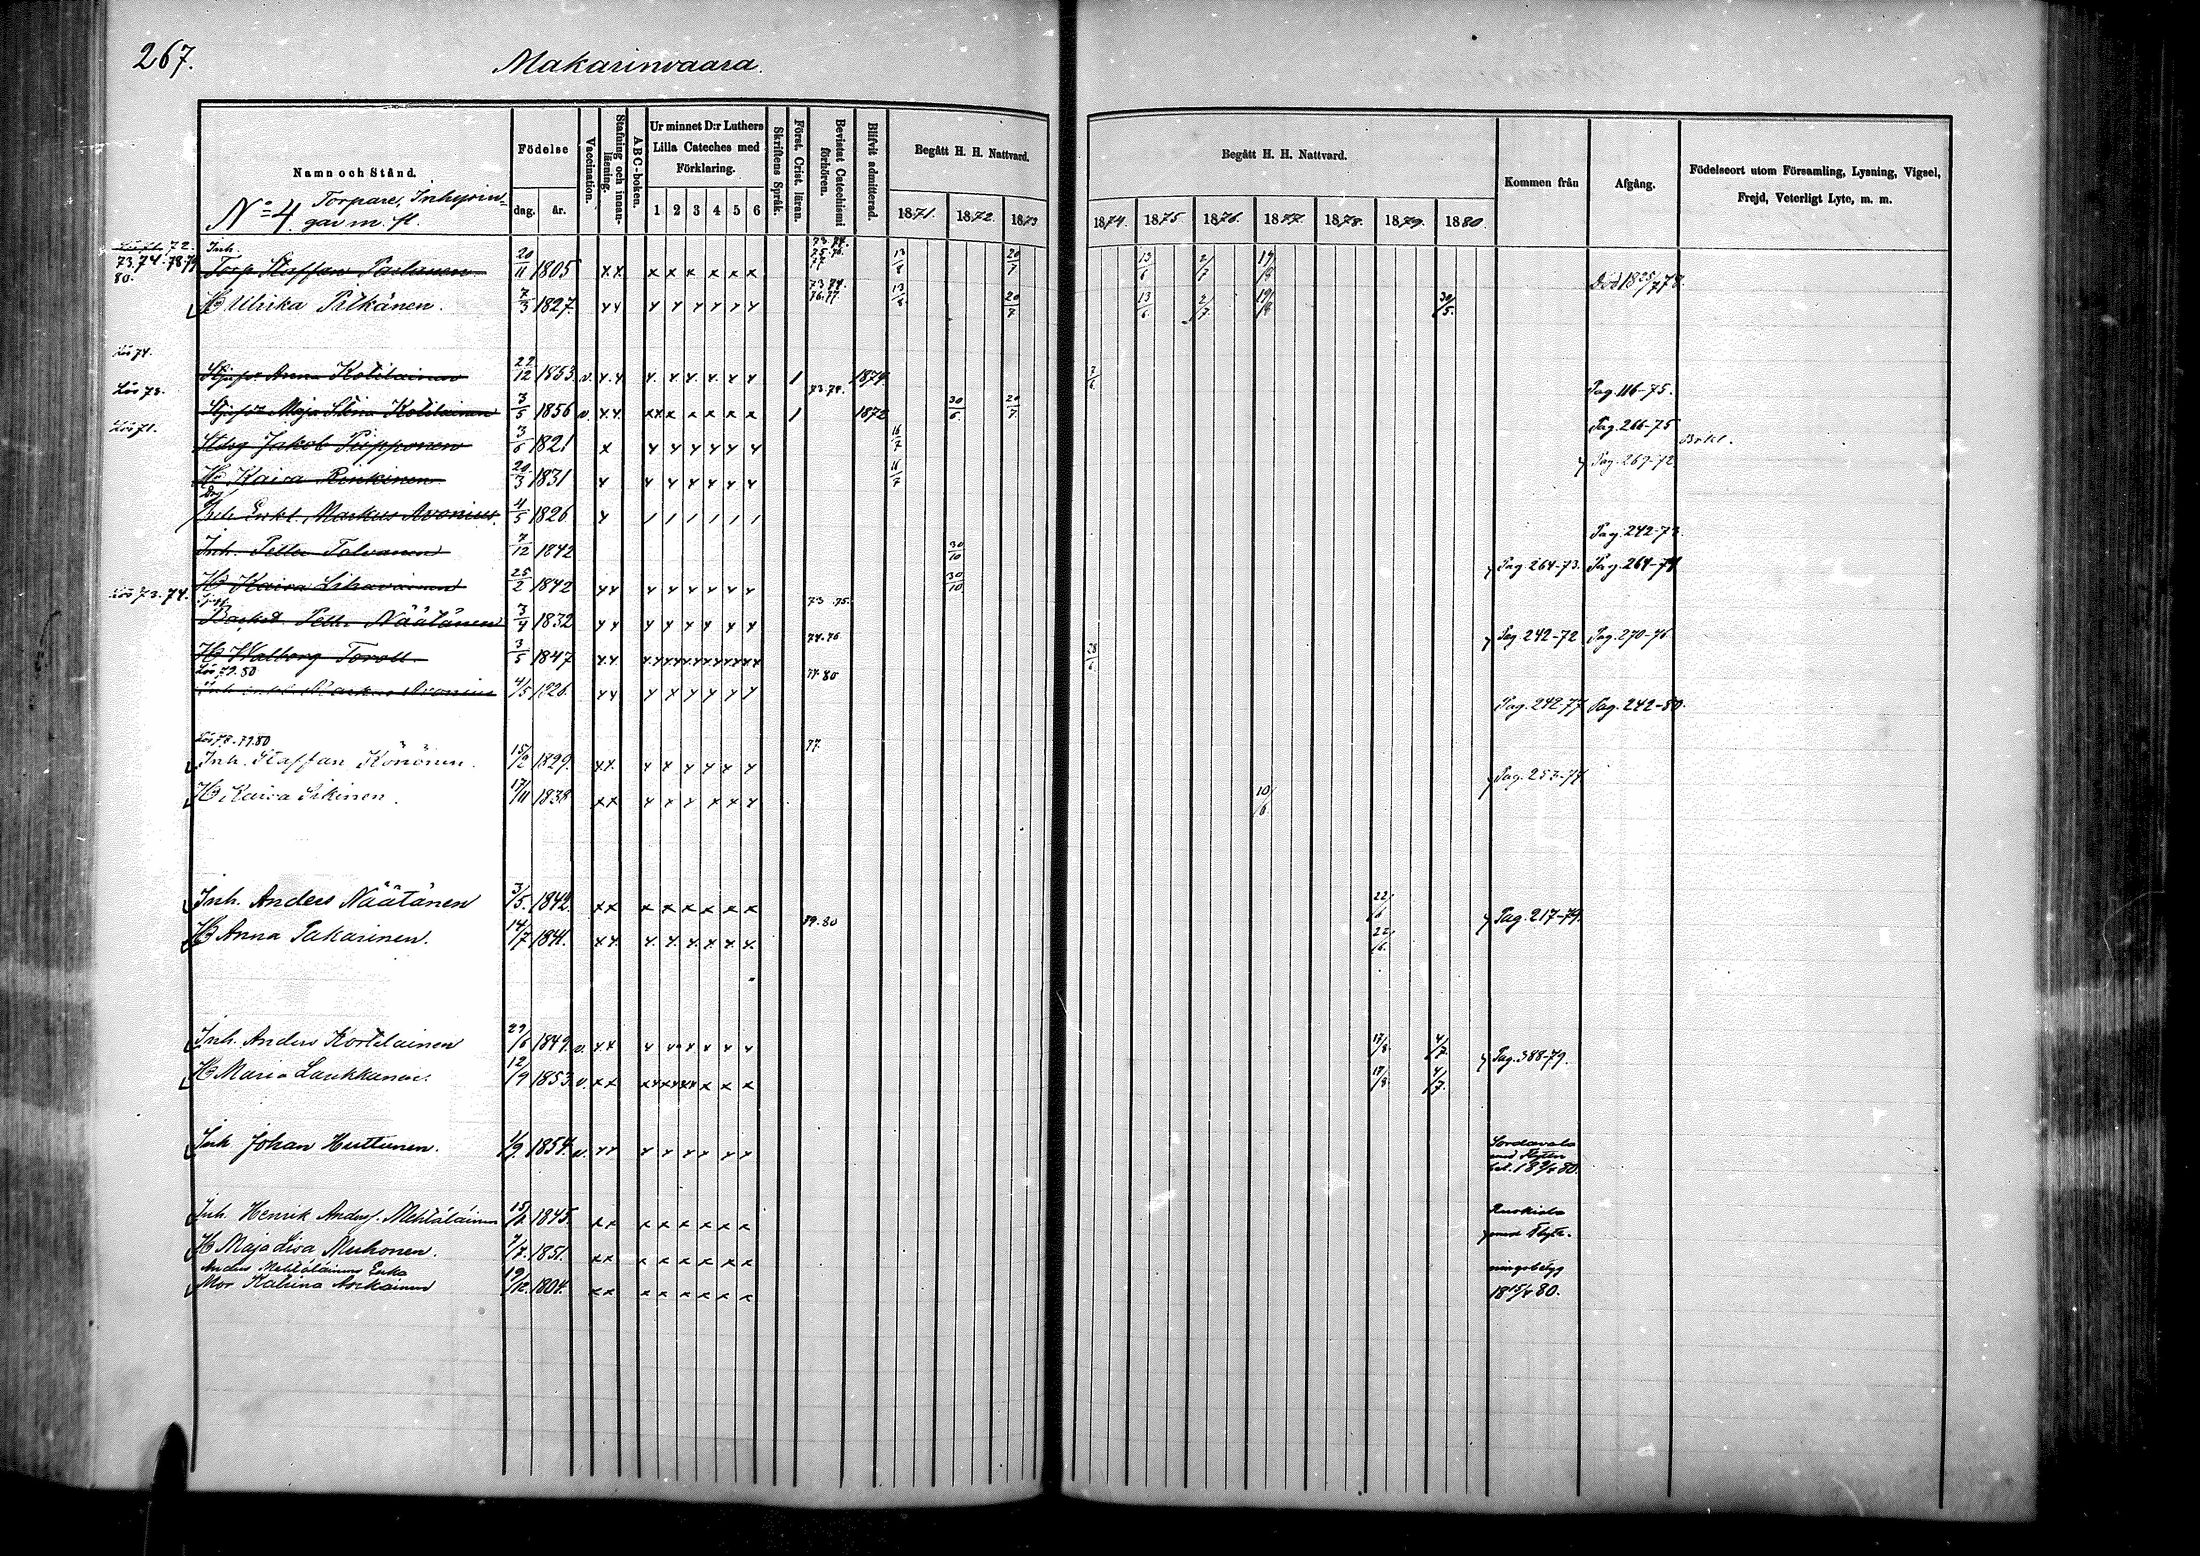 267.
Makarinvaara.
Namn och Stånd.
No 4. Torpare, Inhysin-
gar m. fl.
Födelse
dag.
år.
Vaccination.
Stafning och innan-
läsning.
ABC-boken.
Ur minnet D:r Luthers
Lilla Cateches med
Förklaring.
1 2 3 4 5 6
Skriftens Språk.
Först. Crist. läran.
Bevistat Catechismi
förhören.
Blifvit admitterad.
Begått H. H. Nattvard.
1871. 1872. 1873
Begått H. H. Nattvard.
1874. 1875. 1876. 1877. 1878. 1879. 1880.
Kommen från
Afgång.
Födelseort utom Församling, Lysning, Vigsel,
Frejd, Veterligt Lyte, m. m.
72.
73.74.78.79
80.
Inh.
Torp Staffan 20/11 1805 x x x x x x x x 73.74. 75.76. 77 13/8 20/7 13/6 2/7 19/8 Död 1825/778.
H Ulrika Pitkänen. 7/3 1827. 73.74. 76.77. 13/8 20/7 13/6 2/7 19/8 30/5.
Läs 74.
Anna Kotilainen 22/12 1853 v. 1 1874. 7/6 Pag. 116-75.
Läs 73.
Maja Stina Kotilainen 3/5 1856 v. 1 73.74. 1872 30/6 20/7 Pag. 266-75
Läs 71.
Jakob Piipponen 3/6 1821 16/7 Pag. 269-72
H Kaisa Rinkinen 20/3 1831 16/7
Inh Enkl. Markus Avonius. 4/5 1826 Pag. 242-73.
Inh. Petter Tolvanen 7/12 1842 30/10 Pag. 264-73. Pag. 264-74
H Kaisa Sihavainen 25/2 1842 30/10
Läs 73.74.
Petter Näätänen 3/4 1832 73.75. Pag. 242-72 Pag. 270-76
H Walborg Toroll. 3/5 1847 74.76 28/6
Läs 79.80
Markus Avonius 4/5 1826 77-80 Pag. 242-77 Pag. 242-80.
Läs 78.79.80
Inh. Staffan Könönen. 15/2 1829. 77. Pag. 257-77
H Kaisa Sikinen. 17/11 1838 10/6
Inh. Anders Näätänen 3/5. 1842. 22/6 Pag. 217-79.
H Anna Pakarinen. 14/7 1841. 79.80 22/6.
Inh. Anders Kortelainen 29/6 1849. v. 17/8. 4/7. Pag. 388-79.
H Maria Laukkanen. 12/9 1853. v. 17/8. 4/7.
Inh Johan Huttunen. 1/9. 1854. v. Sordavala
med flyttn
bet. 80.
Inh. Henrik Andersf. Mehtäläinen 15/6 1845. Ruskiala
H Maja Lisa Muhonen. 9/7. 1851. med Flytt-
Anders Mehtäläinens Enka
Mor Katrina Asikainen 19/12. 1804. ningsbetyg
18 15/4 80.